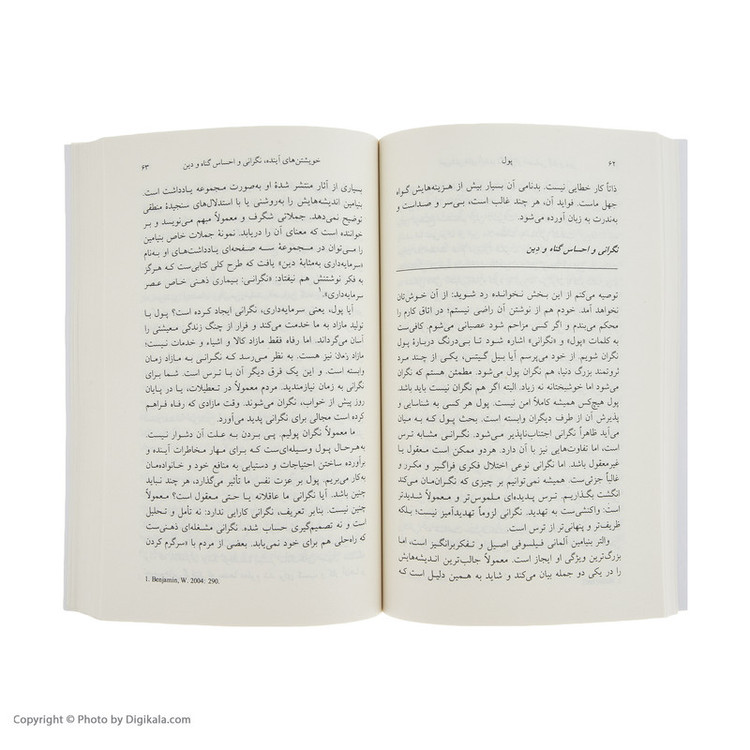 ۶۲
پول
ذاتاً کار خطایی نیست. بدنامی آن بسیار بیش از هزینه‌هایش گواه
جهل ماست. فواید آن، هر چند غالب است، بی‌سر و صداست و
به‌ندرت به زبان آورده می‌شود.
نگرانی و احساس گناه و دین
توصیه می‌کنم از این بخش نخوانده رد شوید: از آن خوش‌تان
نخواهد آمد. خودم هم از نوشتن آن راضی نیستم؛ در اتاق کارم را
محکم می‌بندم و اگر کسی مزاحم شود عصبانی می‌شوم. کافی‌ست
به کلمات «پول» و «نگرانی» اشاره شود تا بی‌درنگ دربارهٔ پول
نگران شویم. از خود می‌پرسم آیا بیل گیتس، یکی از چند مرد
ثروتمند بزرگ دنیا، هم نگران پول می‌شود. مطمئن هستم که نگران
می‌شود اما خوشبختانه نه زیاد. البته اگر هم نگران نیست باید باشد
پول هیچ‌کس همیشه کاملا امن نیست. پول هر کسی به شناسایی و
پذیرش آن از طرف دیگران وابسته است. بحث پول که به میان
می‌آید ظاهراً نگرانی اجتناب‌ناپذیر می‌شود. نگرانی مشابه ترس
است، اما تفاوت‌هایی نیز با آن دارد. هردو ممکن است معقول یا
غیرمعقول باشد. اما نگرانی نوعی اختلال فکری فراگیر و مکرر و
غالباً جزئی‌ست. همیشه نمی‌توانیم بر چیزی که نگران‌مان می‌کند
انگشت بگذاریم. ترس پدیده‌ای ملموس‌تر و معمولاً شدیدتر
است: واکنشی‌ست به تهدید. نگرانی لزوماً تهدیدآمیز نیست؛ بلکه
ظریف‌تر و پنهانی‌تر از ترس است.
والتر بنیامین آلمانی فیلسوفی اصیل و تفکربرانگیز است، اما
بزرگ‌ترین ویژگی او ایجاز است. معمولاً جالب‌ترین اندیشه‌هایش
را در یکی دو جمله بیان می‌کند و شاید به همین دلیل است که
خویشتن‌های آینده، نگرانی و احساس گناه و دین
۶۳
بسیاری از آثار منتشر شدهٔ او به‌صورت مجموعه یادداشت است.
بنیامین اندیشه‌هایش را به‌روشنی یا با استدلال‌های سنجیدهٔ منطقی
توضیح نمی‌دهد. جملاتی شگرف و معمولاً مبهم می‌نویسد و بر
خواننده است که معنای آن را دریابد. نمونهٔ جملات خاص بنیامین
را می‌توان در مجموعهٔ سه صفحه‌ای یادداشت‌های او به‌نام
«سرمایه‌داری به‌مثابهٔ دین» یافت که طرح کلی کتابی‌ست که هرگز
به فکر نوشتنش هم نیفتاد: «نگرانی: بیماری ذهنی خاص عصر
سرمایه‌داری».۱
آیا پول، یعنی سرمایه‌داری، نگرانی ایجاد کرده است؟ پول با
تولید مازاد به ما خدمت می‌کند و فرار از چنگ زندگی معیشتی را
آسان می‌گرداند. اما رفاه فقط مازاد کالا و اشیاء و خدمات نیست؛
مازاد زمان نیز هست. به نظر می‌رسد که نگرانی به مازاد زمان
وابسته است. و این یک فرق دیگر آن با ترس است. شما برای
نگرانی به زمان نیازمندید. مردم معمولاً در تعطیلات، یا در پایان
روز پیش از خواب، نگران می‌شوند. وقت مازادی که رفاه فراهم
کرده است مجالی برای نگرانی پدید می‌آورد.
ما معمولاً نگران پولیم. پی بردن به علت آن دشوار نیست.
به‌هرحال پول وسیله‌ای‌ست که برای مهار مخاطرات آینده و
برآورده ساختن احتیاجات و دستیابی به منافع خود و خانواده‌مان
به‌کار می‌بریم. پول بر عزت نفس ما تأثیر می‌گذارد، هر چند نباید
چنین باشد. آیا نگرانی ما عاقلانه یا حتی معقول است؟ معمولاً
چنین نیست. بنابر تعریف، نگرانی کارایی ندارد: نه تأمل و تحلیل
است و نه تصمیم‌گیری حساب شده. نگرانی مشغله‌ای ذهنی‌ست
که راه‌حلی هم برای خود نمی‌یابد. بعضی از مردم با «سرگرم کردن
1. Benjamin, W. 2004: 290.
Copyright © Photo by Digikala.com